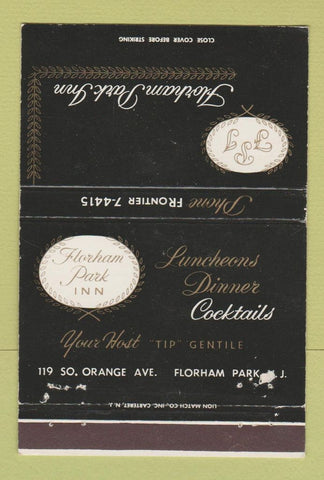 CLOSE COVER BEFORE STRIKING
Florham Park Inn
F P I
Phone FRONTIER 7-4415
Florham
Park
INN
Luncheons
Dinner
Cocktails
Your Host "TIP" GENTILE
119 SO. ORANGE AVE. FLORHAM PARK, J.
LION MATCH CO., INC. CARTERET, N. J.